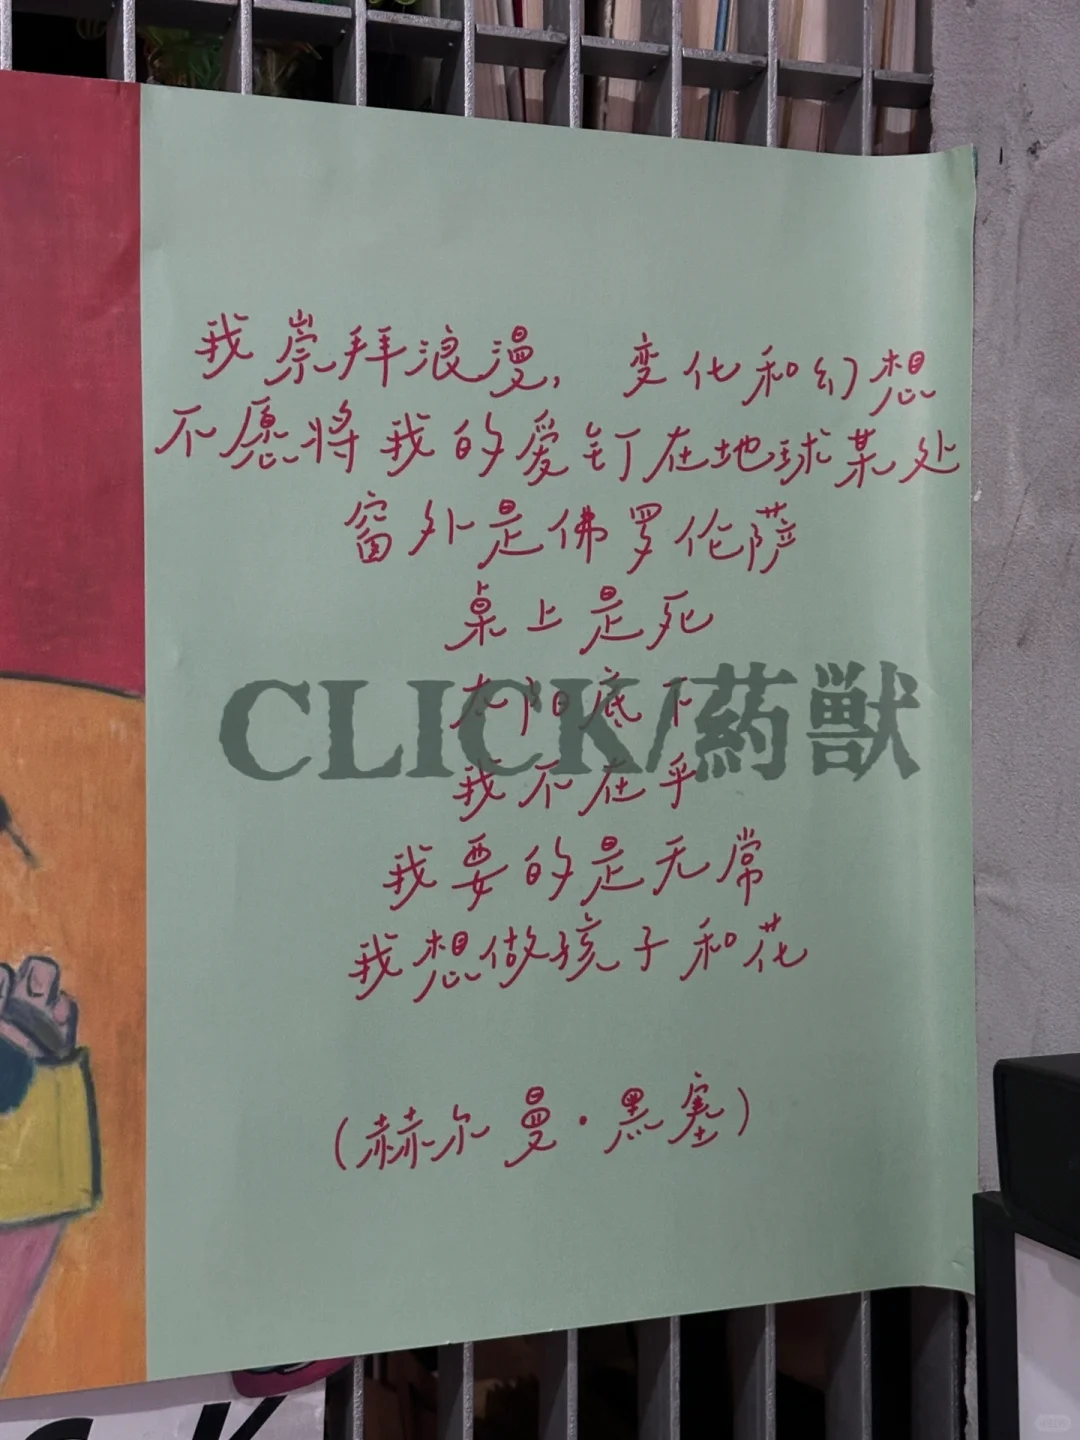 我崇拜浪漫，变化和幻想
不愿将我的爱钉在地球某处
窗外是佛罗伦萨
桌上是死
太阳底下
CLICK/药獸
我不在乎
我要的是无常
我想做孩子和花
(赫尔曼·黑塞)